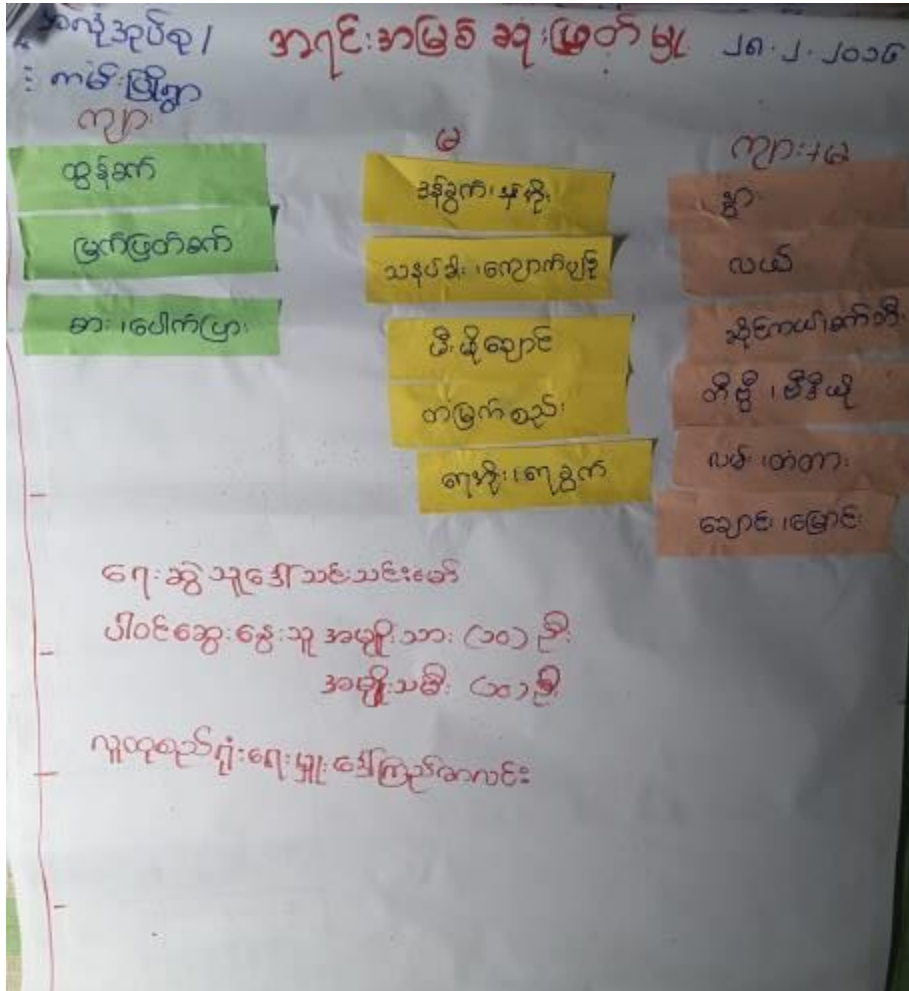 အလုံအုပ်စု၊
ကမ်းဖြိုရွာ
အရင်းအမြစ် ဆုံးဖြတ်မှု
၂၈.၂.၂၀၁၆
ကျား
ထွန်ခက်
မြက်ဖြတ်စက်
ဓား၊ပေါက်ပြား
မ
ဒန်ခွက်၊ဒန်အိုး
သနပ်ခါး၊ကျောက်ပျဉ်
မီးဖိုချောင်
တံမြက်စည်း
ရေအိုး၊ရေခွက်
ကျား+မ
နွား
လယ်
ဆိုင်ကယ်၊စက်ဘီး
တီဗွီ၊ဗီဒီယို
လမ်း၊တံတား
ချောင်း၊မြောင်း
ရေးဆွဲသူဒေါ်သင်းသင်းမော်
ပါဝင်ဆွေးနွေးသူ အမျိုးသား (၁၀) ဦး
အမျိုးသမီး (၁၀) ဦး
လူထုစည်းရုံးရေးမှူး ဒေါ်ကြည်